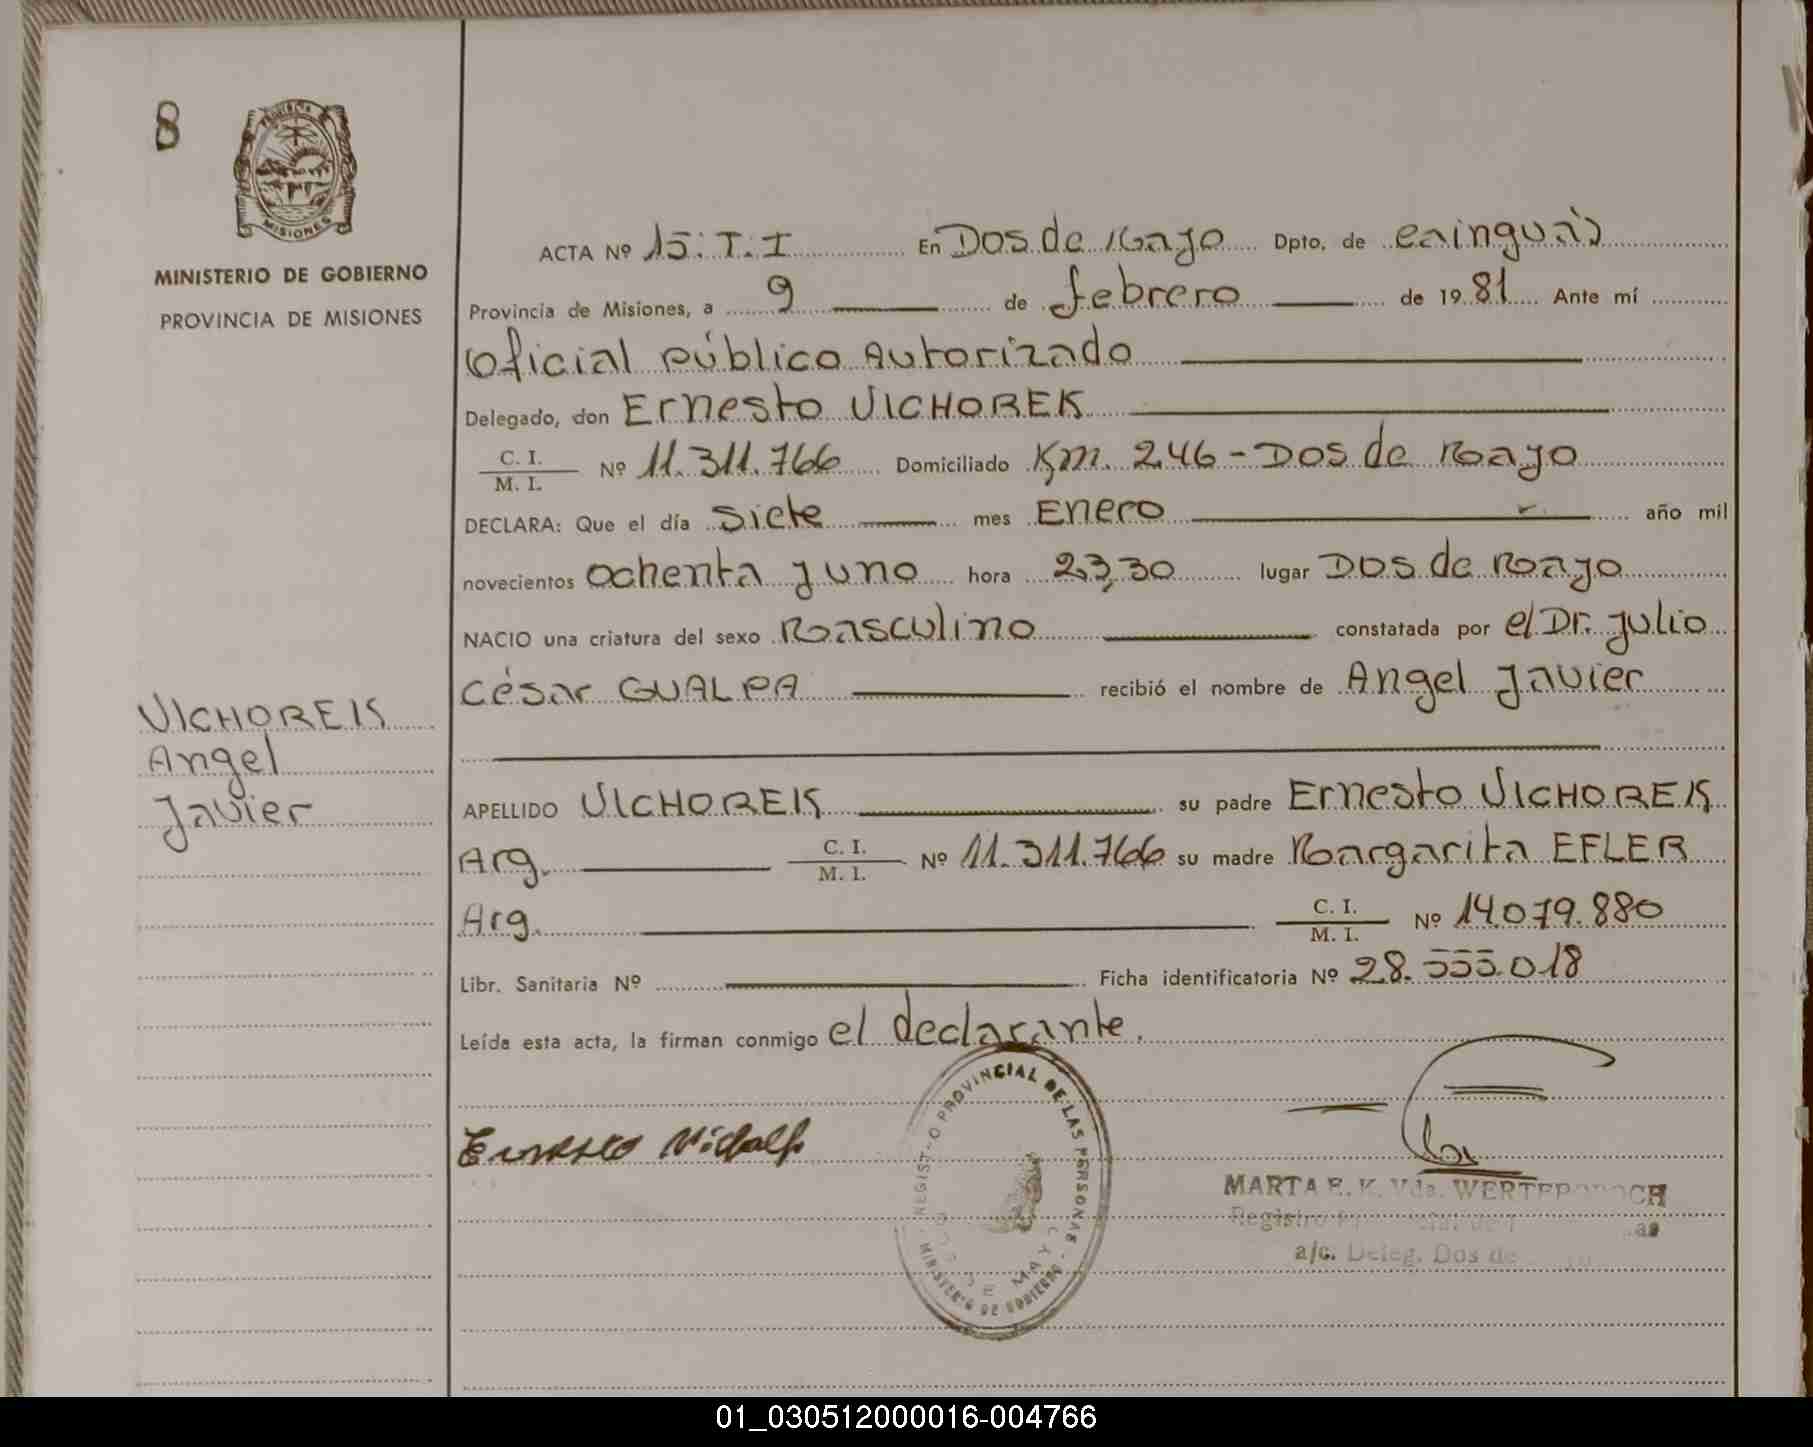 8
MISIONES
MINISTERIO DE GOBIERNO
PROVINCIA DE MISIONES
ACTA Nº 15. T. I En Dos de Mayo Dpto. de Cainguás
Provincia de Misiones, a 9 de febrero de 1981 Ante mí
Oficial Público Autorizado
Delegado, don Ernesto VICHOREK
C. I.
M. I.
Nº 11.311.766 Domiciliado Km. 246 - Dos de Mayo
DECLARA: Que el día Siete mes Enero año mil
novecientos ochenta y uno hora 23,30 lugar Dos de Mayo
NACIO una criatura del sexo Masculino constatada por el Dr. Julio
César GUALPA recibió el nombre de Angel Javier
VICHOREK
Angel
Javier
APELLIDO VICHOREK su padre Ernesto VICHOREK
Arg. C. I.
M. I.
Nº 11.311.766 su madre Margarita EFLER
Arg. C. I.
M. I.
Nº 14.079.880
Libr. Sanitaria Nº Ficha identificatoria Nº 28.555.018
Leída esta acta, la firman conmigo el declarante.
REGISTRO PROVINCIAL DE LAS PERSONAS - MINISTERIO DE GOBIERNO
DOS DE MAYO
Ernesto
MARTA E. K. Vda.
Registro
a/c. Deleg. Dos de
01_030512000016-004766